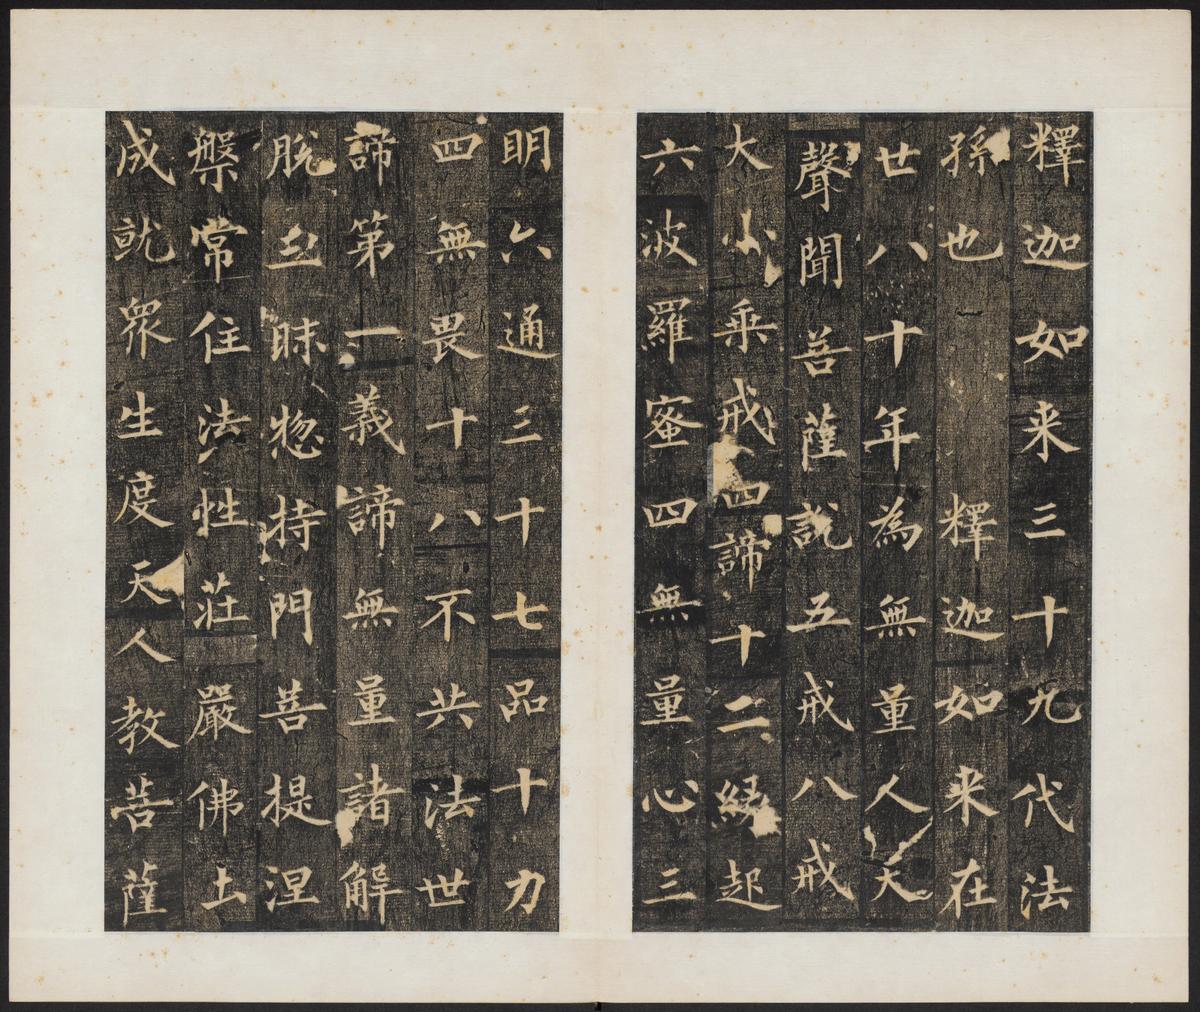 釋迦如来三十九代法
孫也　釋迦如来在
世八十年為無量人天
聲聞菩薩說五戒八戒
大小乗戒四諦十二緣起
六波羅蜜四無量心三
明六通三十七品十力
四無畏十八不共法世
諦第一義諦無量諸解
脫三昧惣持門菩提涅
槃常住法性莊嚴佛土
成就眾生度天人教菩薩